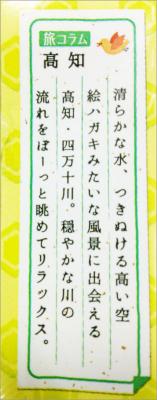 旅コラム
高知
清らかな水、つきぬける高い空
絵ハガキみたいな風景に出会える
高知・四万十川。穏やかな川の
流れをぼーっと眺めてリラックス。